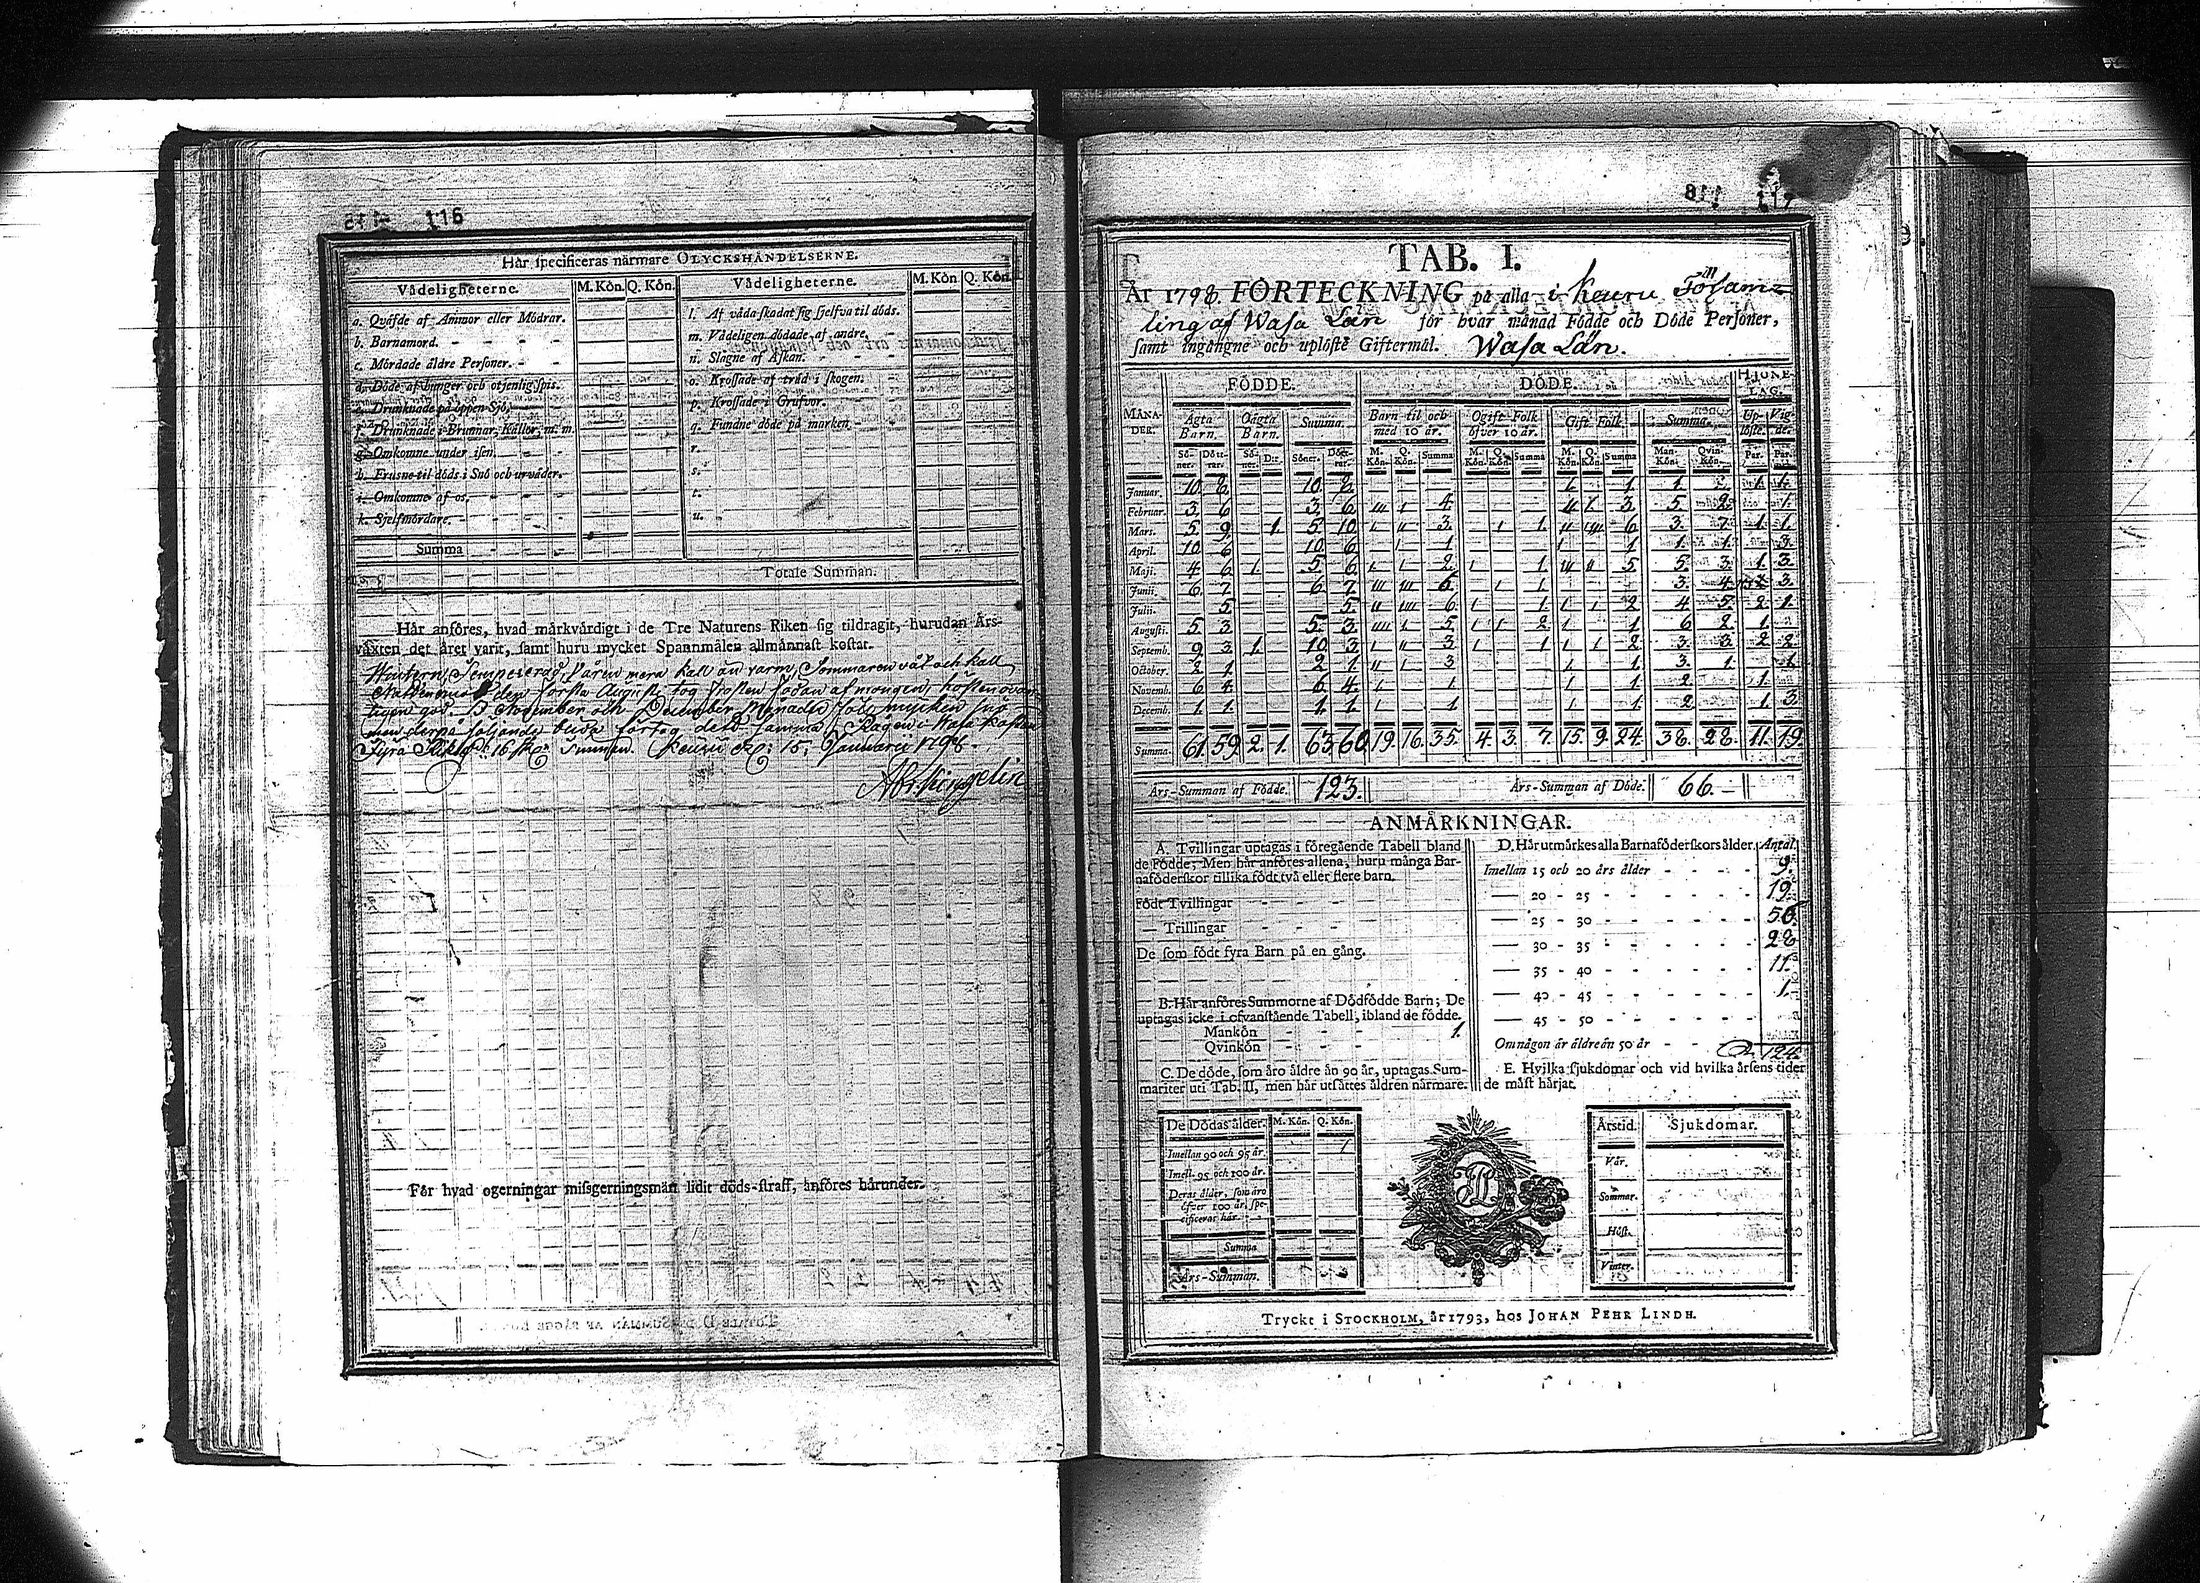 116
Hår specificeras närmare OLYCKSHÄNDELSERNE.
Vådeligheterne. M. Kön. Q. Kön. Vådeligheterne. M. Kön Q. Kön.
a. Qväfde af Ammor eller Mödrar.
b. Barnamord.
c. Mördade äldre Personer.
d. Döde af hunger och otjenlig spis.
e. Drunknade på öppen Sjö,
f. Drunknade i Brunnar, Källor, m. m.
g. Omkomne under isen.
h. Frusne til döds i Snö och urväder.
i. Omkomne af os,
k. Sjelfmördare.
Summa
l. Af våda skadat sig sjelfva til döds.
m. Vådeligen dödade af andre.
n. Slagne af Åskan.
o. Krossade af träd i skogen.
p. Krossade i Grufvor.
q. Fundne döde på marken.
r.
s.
t.
u.
Totale Summan.
Här anföres, hvad märkvärdigt i de Tre Naturens Riken sig tildragit, hurudan Års-
växten det året varit, samt huru mycket Spannmålen allmännast kostar.
Wintern Tempererad, Våren mera kall än varm, Sommaren våt och kall
den första Augusti tog frosten af hösten
god. I November och December Månader föll mycken snö
men derpå följande
Fyra Riksd. 16 Keuru d. 15 Januarii 1798.
För hvad ogerningar missgerningsmän lidit döds-straff, anföres härunder.
117
TAB. I.
År 1798. FÖRTECKNING på alla i Keuru Församm
ling af Wasa Län för hvar månad Födde och Döde Personer,
samt ingångne och uplöste Giftermål. Wasa Län.
MÅNADER. FÖDDE. DÖDE. HJONELAG.
Ägta Barn. Oägta Barn. Summa. Barn til och med 10 år. Ogift Folk öfver 10 år. Gift Folk. Summa. Uplöste. Vigde.
Söner. Döttrar. Söner. Dtr. Söner. Döttrar. M. Kön. Q. Kön. Summa M. Kön. Q. Kön. Summa M. Kön. Q. Kön. Summa Man Kön. Qvin Kön. Par. Par.
Januar. 10 8 10 8
Februar. 3 6 3 6 4 3 5
Mars. 5 9 1 5 10 3 1 6 3 7 1 1
April. 10 6 10 6 1 1 1 1 3
Maji. 4 6 1 5 6 2 1 5 5 3 1 3
Junii. 6 7 6 7 6 1 3 4 3
Julii. 5 5 6 1 2 4 5 2 1
Augusti. 5 3 5 3 5 2 1 6 2 1
Septemb. 9 3 1 10 3 1 1 2 3 3 2 2
October. 2 1 2 1 3 1 3 1 1
Novemb. 6 4 6 4 1 1 2 1
Decemb. 1 1 1 1 1 1 2 1 3
Summa 61. 59. 2. 1. 63 60 19. 16. 35. 4. 3. 7. 15. 9. 24. 38. 28. 11. 19.
Års-Summan af Födde. 123. Års-Summan af Döde. 66.
ANMÄRKNINGAR.
A. Tvillingar uptagas i föregående Tabell bland
de Födde; Men här anföres allena, huru många Bar-
naföderskor tillika födt två eller flere barn.
Födt Tvillingar
— Trillingar
De som födt fyra Barn på en gång.
B. Här anföres Summorne af Dödfödde Barn; De
uptagas icke i ofvanstående Tabell, ibland de födde.
Mankön 1.
Qvinkön
C. De döde, som äro äldre än 90 år, uptagas Sum-
mariter uti Tab. II, men här utsättes åldren närmare.
D. Här utmärkes alla Barnaföderskors ålder. Antal.
Imellan 15 och 20 års ålder 9.
— 20 - 25 19.
— 25 - 30 56
— 30 - 35 28
— 35 - 40 11.
— 40 - 45 1.
— 45 - 50
Om någon är äldre än 50 år
124.
E. Hvilka sjukdomar och vid hvilka årsens tider
de mäst härjat.
De Dödas ålder. M. Kön. Q. Kön.
Imellan 90 och 95 år. 1
Imell. 95 och 100 år.
Deras ålder, som äro
öfver 100 år, spe-
cificeras här.
Summa
Års-Summan.
Årstid. Sjukdomar.
Vår.
Sommar.
Höst.
Vinter.
Tryckt i STOCKHOLM, år 1793, hos JOHAN PEHR LINDH.